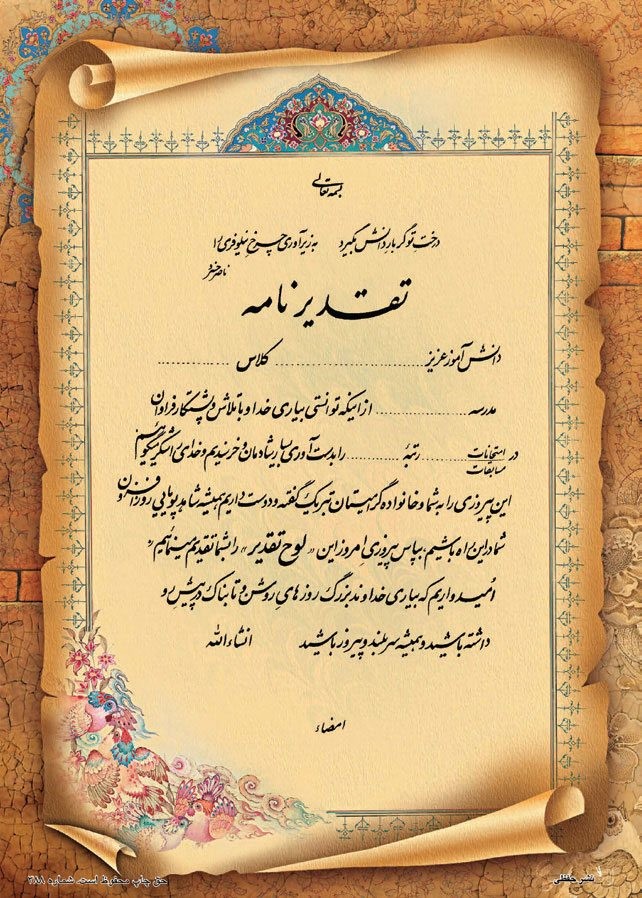 بسمه تعالی
درختِ تو گر بارِ دانش بگیرد    به زیر آوری چرخ نیلوفری را
ناصر خسرو
تقدیرنامه
دانش آموز عزیز .................................. کلاس ..................
مدرسه .................. از اینکه توانستی بیاری خدا و با تلاش و پشتکار فراوان
در امتحانات مسابقات .......... رتبهٔ .......... را بدست آوری بسیار شادمان و خرسندیم و خدای را شکر میگوییم
این پیروزی را به شما و خانواده گرامیتان تبریک گفته و دوست داریم همیشه شاهد پویایی روزافزون
شما در این راه باشیم؛ بپاس پیروزیِ امروز این «لوح تقدیر» را بشما تقدیم مینمائیم و
امُیدواریم که بیاری خداوند بزرگ روزهایِ روشن و تابناک در پیشِ رو
داشته باشید و همیشه سربلند و پیروز باشید    انشاءالله
امضاء
نشر حافظی
حق چاپ محفوظ است. شماره